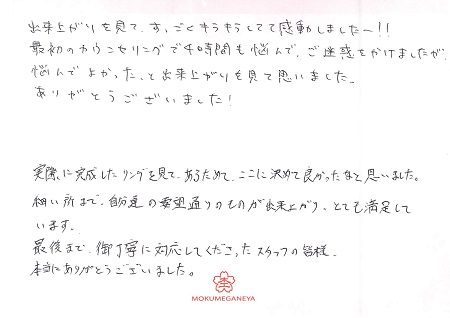 出来上がりを見て、すっごくキラキラしてて感動しました〜!!
最初のカウンセリングで4時間も悩んで、ご迷惑をかけましたが、
悩んでよかった、と出来上がりを見て思いました。
ありがとうございました!
実際に完成したリングを見て、あらためて、ここに決めて良かったなと思いました。
細い所まで、自分達の要望通りのものが出来上がり、とても満足して
います。
最後まで、御丁寧に対応してくださったスタッフの皆様、
本当にありがとうございました。
MOKUMEGANEYA